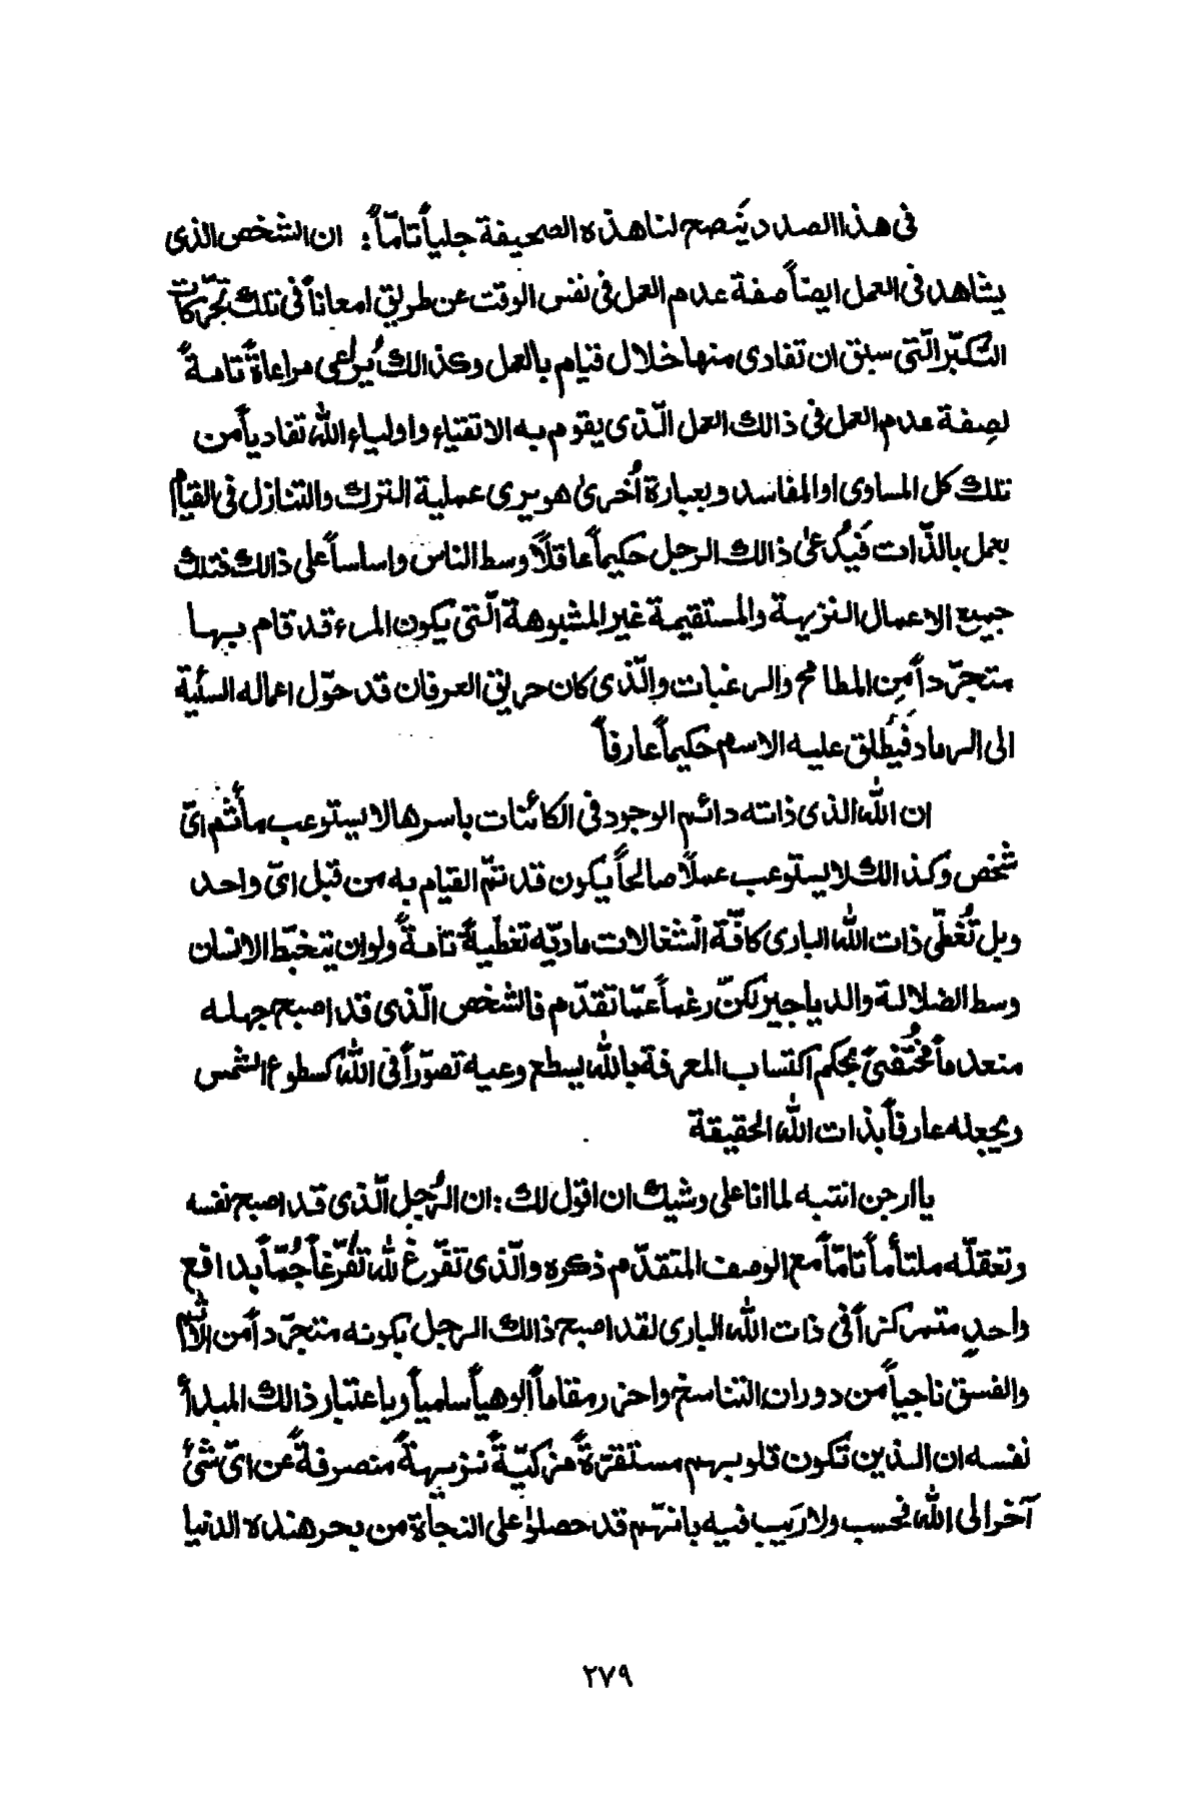 فى هذا الصدد يَنصح لنا هذه الصحيفة جلياً تامّاً: ان الشخص الذى
يشاهد فى العمل ايضاً صفة عدم العمل فى نفس الوقت عن طريق امعاناً فى تلك تحرّكات
التكبّر الّتى سبق ان تفادى منها خلال قيام بالعمل وكذالك يُراعى مراعاةً تامةً
لصِفة عدم العمل فى ذالك العمل الّذى يقوم به الاتقياء واولياء الله تفادياً من
تلك كل المساوى او المفاسد وبعبارة أُخرىٰ هو يرى عملية الترك والتنازل فى القيام
بعمل بالذّات فَيُدعىٰ ذالك الرجل حكيماً عاقلاً وسط الناس واساساً على ذالك فتلك
جميع الاعمال النزيهة والمستقيمة غير المشبوهة الّتى يكون المرء قد قام بها
متجرّداً مِن المطامح والرغبات والّذى كان حريق العرفان قد حوّل اعماله السئية
الى الرماد فَيُطلق عليه الاسم حكيماً عارفاً
ان الله الذى ذاته دائم الوجود فى الكائنات باسرها لا يستوعب مأثم اىّ
شخص وكذالك لا يستوعب عملاً صالحاً يكون قد تمّ القيام به من قبل اىّ واحد
وبل تُغطّى ذات الله البارى كافّة انشغالات ماديّه تغطّيةً تامةً ولو ان يتخبّط الانسان
وسط الضلالة والدياجير لكنّ رغماً عمّا تقدّم فالشخص الّذى قد اصبح جهله
منعدماً مُختفىً بحكم اكتساب المعرفة بالله يسطع وعيه تصوّراً فى الله كسطوع الشمس
ويجعله عارفاً بذات الله الحقيقة
يا ارجن انتبه لما انا على وشيك ان اقول لك: ان الرُجل الّذى قد اصبح نفسه
وتعقلّه ملتأماً تامّاً مع الوصف المتقدّم ذكره والّذى تفرّغ لله تفرّغاً جُمّاً بدافع
واحدٍ متمركزاً فى ذات الله البارى لقد اصبح ذالك الرجل بكونه متجرّداً من الاثم
والفسق ناجياً من دوران التناسخ واحرز مقاماً الوهياً سلمياً وباعتبار ذالك المبدأ
نفسه ان الذين تكون قلوبهم مستقرّةً مزكيّةً نزيهةً منصرفةً عن اىّ شئ
آخر الى الله فحسب ولا رَيب فيه بانهّم قد حصلوا على النجاة من بحر هنده الدنيا
٢٧٩